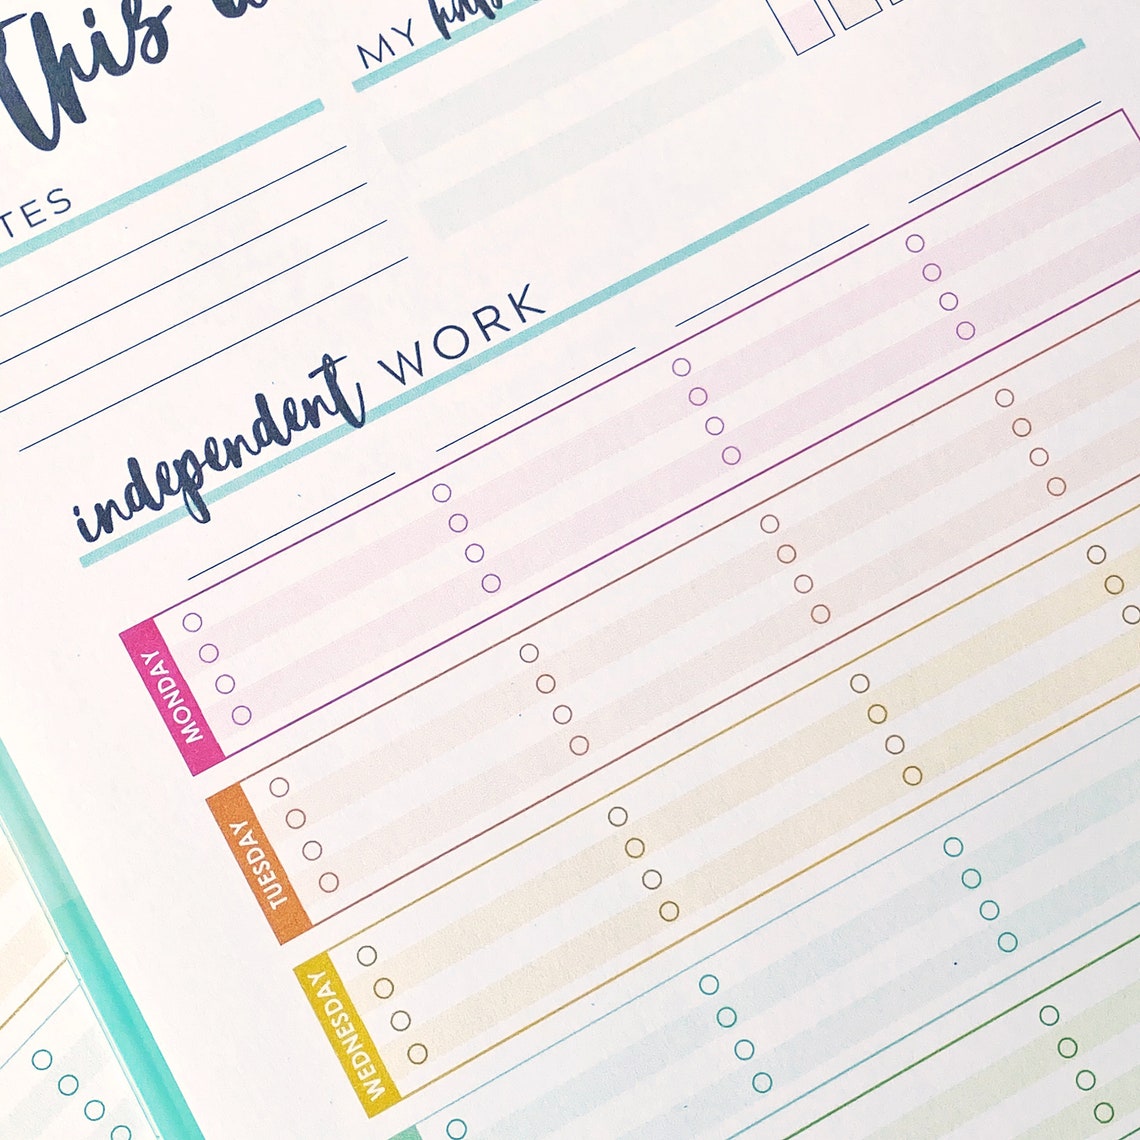 This
MY
TES
independent WORK
MONDAY
TUESDAY
WEDNESDAY